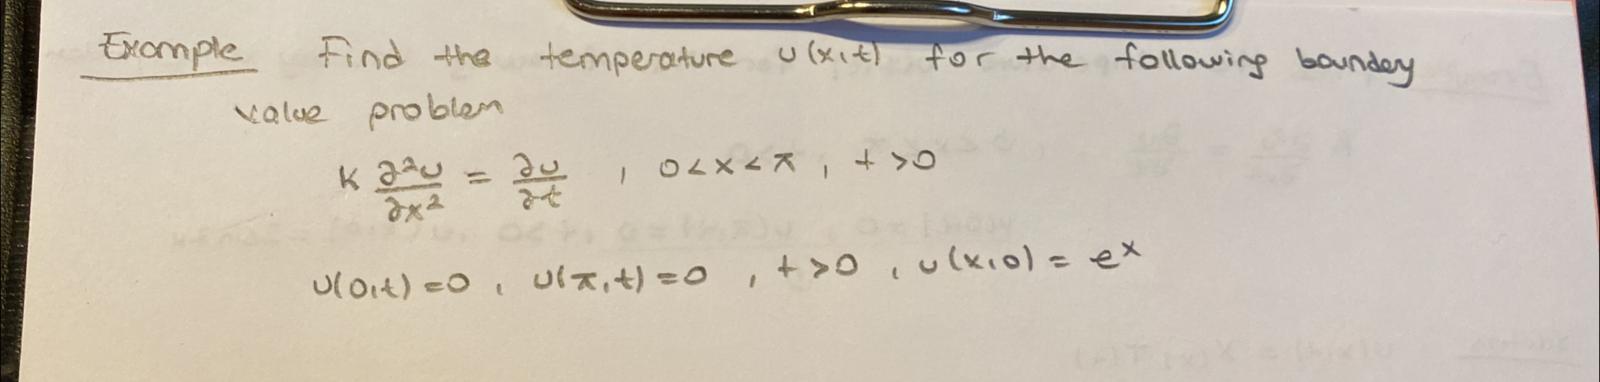 Example Find the temperature u(x,t) for the following boundary
value problem
K ∂²u/∂x² = ∂u/∂t , 0<x<π, t>0
u(0,t)=0, u(π,t)=0 , t>0, u(x,0) = eˣ